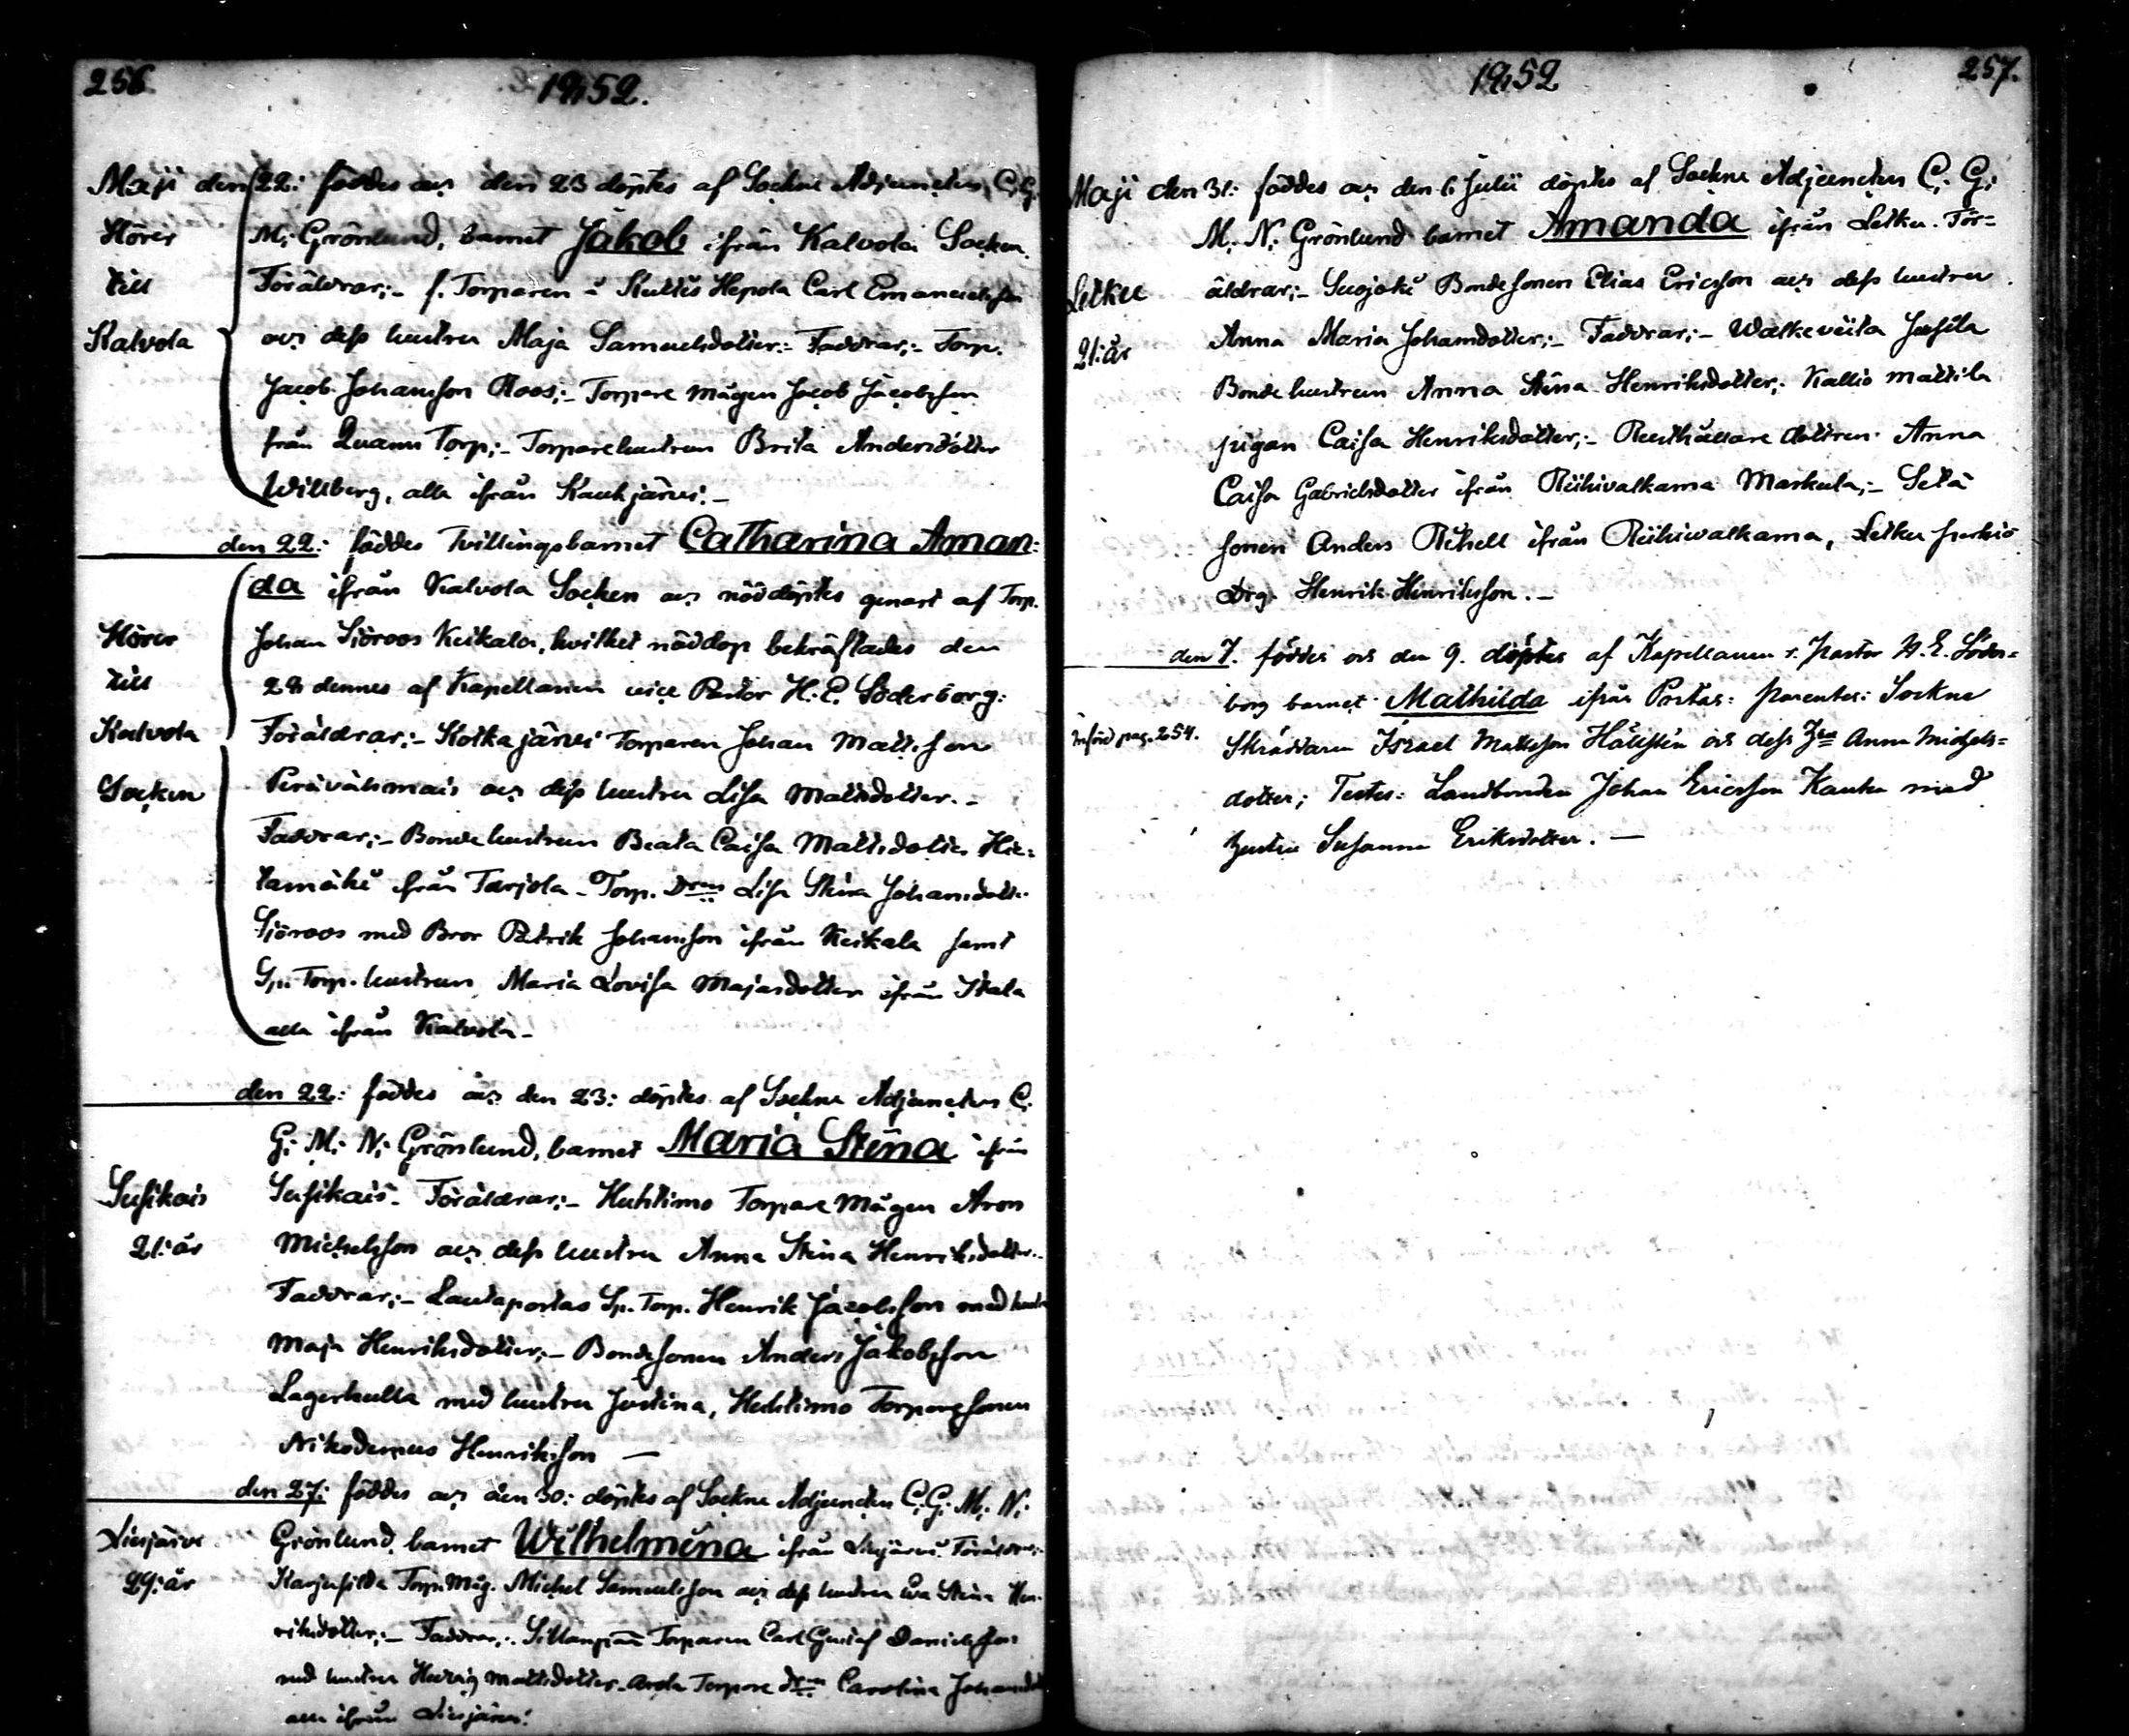 256.
1852.
Maji den 22: föddes och den 23 döptes af Sockne Adjuncten C. G.
Hörer
M: Grönlund, barnet Jakob ifrån Kalvola Socken.
till
Föräldrar;- f. Torparen Hepola Carl Emanuelsson
Kalvola
och dess hustru Maja Samuelsdotter:- Faddrar;- Torp.
Jacob Johansson Roos;- Torpare mågen Jacob Jacobsson
från Torp;- Torparehustrun Brita Andersdotter
Willberg, alla ifrån Kaukjärvi.-
den 22: föddes Tvillingsbarnet Catharina Aman:
da ifrån Kalvola Socken och nöddöptes genast af Torp.
Hörer
Johan Sjöroos Keikala, hvilket nöddop bekräftades den
till
dennes af Kapellanen vice Pastor H. E. Söderborg:
Kalvola
Föräldrar;- Kotkajärvi Torparen Johan Mattsson
Socken
och dess hustru Lisa Mattsdotter.-
Faddrar;- Bondehustrun Beata Caisa Mattsdotter Hie:
tamäki från Tarjola - Torp. Drn Lisa Stina Johansdotter
Sjöroos med Bror Patrik Johansson ifrån Keikala samt
Sp. Torp. hustrun Maria Lovisa Majasdotter ifrån Itala
alla ifrån Kalvola-
den 22: föddes och den 23: döptes af Sockne Adjuncten C.
G: M: N: Grönlund, barnet Maria Stina ifrån
Susikais
Susikais- Föräldrar;- Huhtimo Torpare Mågen Aron
21: år
Michelsson och dess hustru Anna Stina Henriksdotter.-
Faddrar;- Lautaportas Sp. Torp. Henrik Jacobsson med hustru
Maja Henriksdotter;- Bondesonen Anders Jakobsson
Lagerkulla med hustru Justina, Huhtimo Torparesonen
Nikodemus Henriksson —
den 27: föddes och den 30: döptes af Sockne Adjuncten C. G. M. N:
Liesjärvi
Grönlund, barnet Wilhelmina ifrån Liesjärvi. Föräldrar:-
29: år
Torp. Måg. Michel Samuelsson och dess hustru Eva Stina Hen-
riksdotter;- Faddrar;- Sillanpää Torparen Carl Gustaf Danielsson
med hustru Hedvig Mattsdotter- Torpare Drn Carolina Johansdotter
alla ifrån Liesjärvi.
1852
257.
Maji den 31: föddes och den 6 Julii döptes af Sockne Adjuncten C: G:
M. N: Grönlund barnet Amanda ifrån Letku. För=
Letku
äldrar;- Suojoki Bondesonen Elias Ericsson och dess hustru
21: år
Anna Maria Johansdotter;- Faddrar;- Jussila
Bondehustrun Anna Stina Henriksdotter; Kallio mattila
pigan Caisa Henriksdotter;- Rusthållare dottren Anna
Caisa Gabrielsdotter ifrån Riihivalkama Markula;-
sonen Anders ifrån Riihivalkama, Letku
Drg. Henrik Henriksson.-
den 7. föddes och den 9. döptes af Kapellanen v. Pastor H. E. Söder=
borg barnet Mathilda ifrån Portas: parentes: Sockne
Införd pag. 254.
Skräddaren Israel Mattsson Hällstén och dess Hru Anna Michels=
dotter; Testes: Landbonden Johan Ericsson Kauta med
hustru Susanna Eriksdotter. —